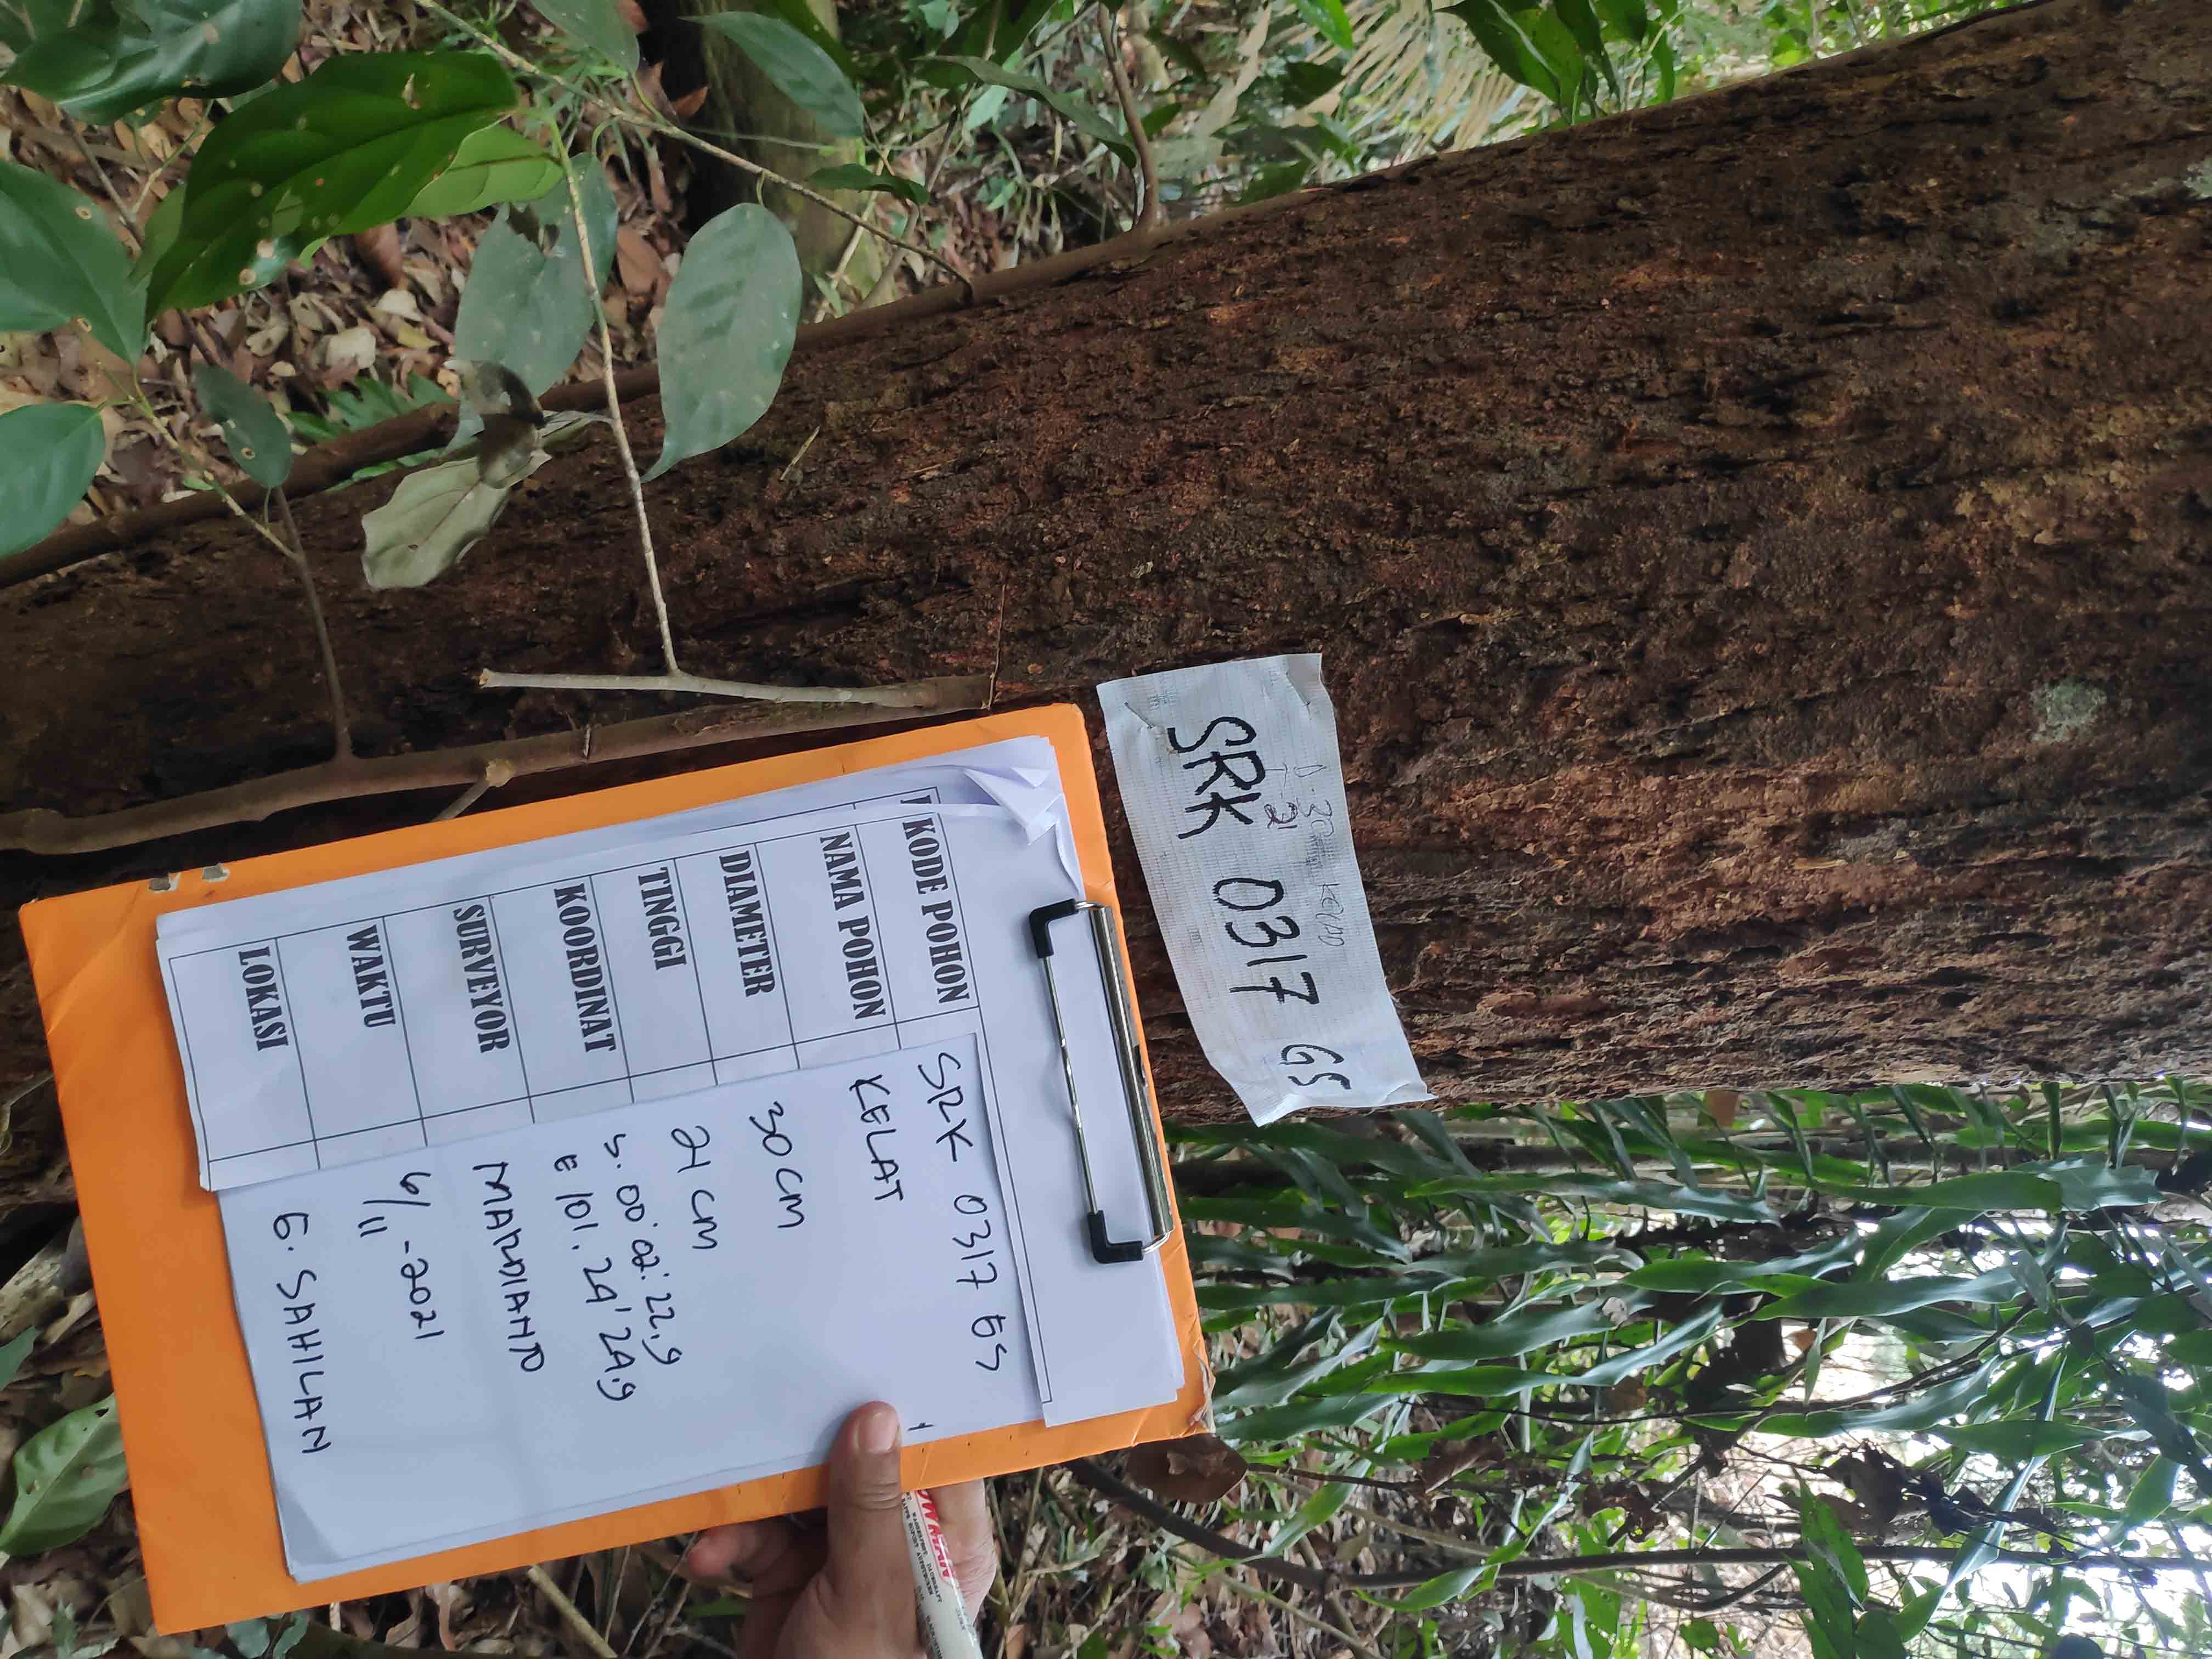 SRK 0317 GS
KODE POHON SRK 0317 GS
NAMA POHON KELAT
DIAMETER 30 CM
TINGGI 21 CM
KOORDINAT S. 00° 02' 22,9
E 101. 24' 24,9
SURVEYOR MARDIANTO
WAKTU 6/11 - 2021
LOKASI G. SAHILAN
SNOWMAN